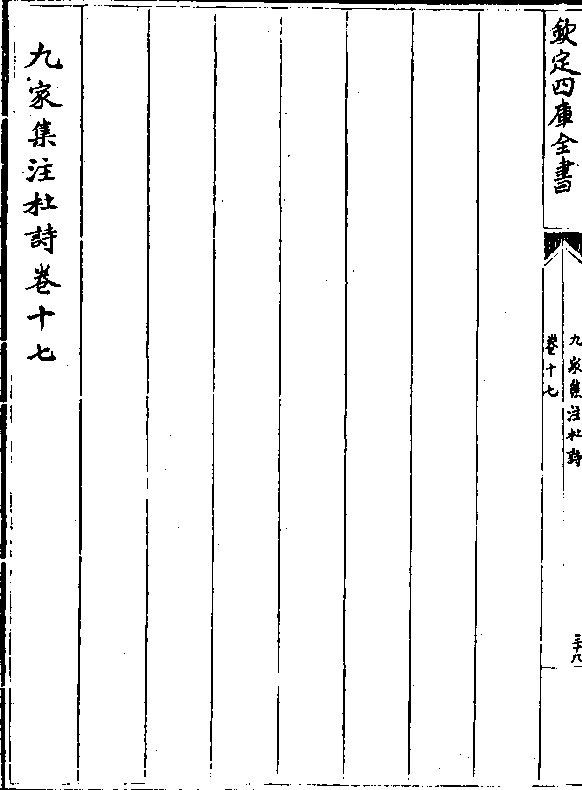 欽定四庫全書
九家集注杜詩
卷十七
三十八
九家集注杜詩卷十七